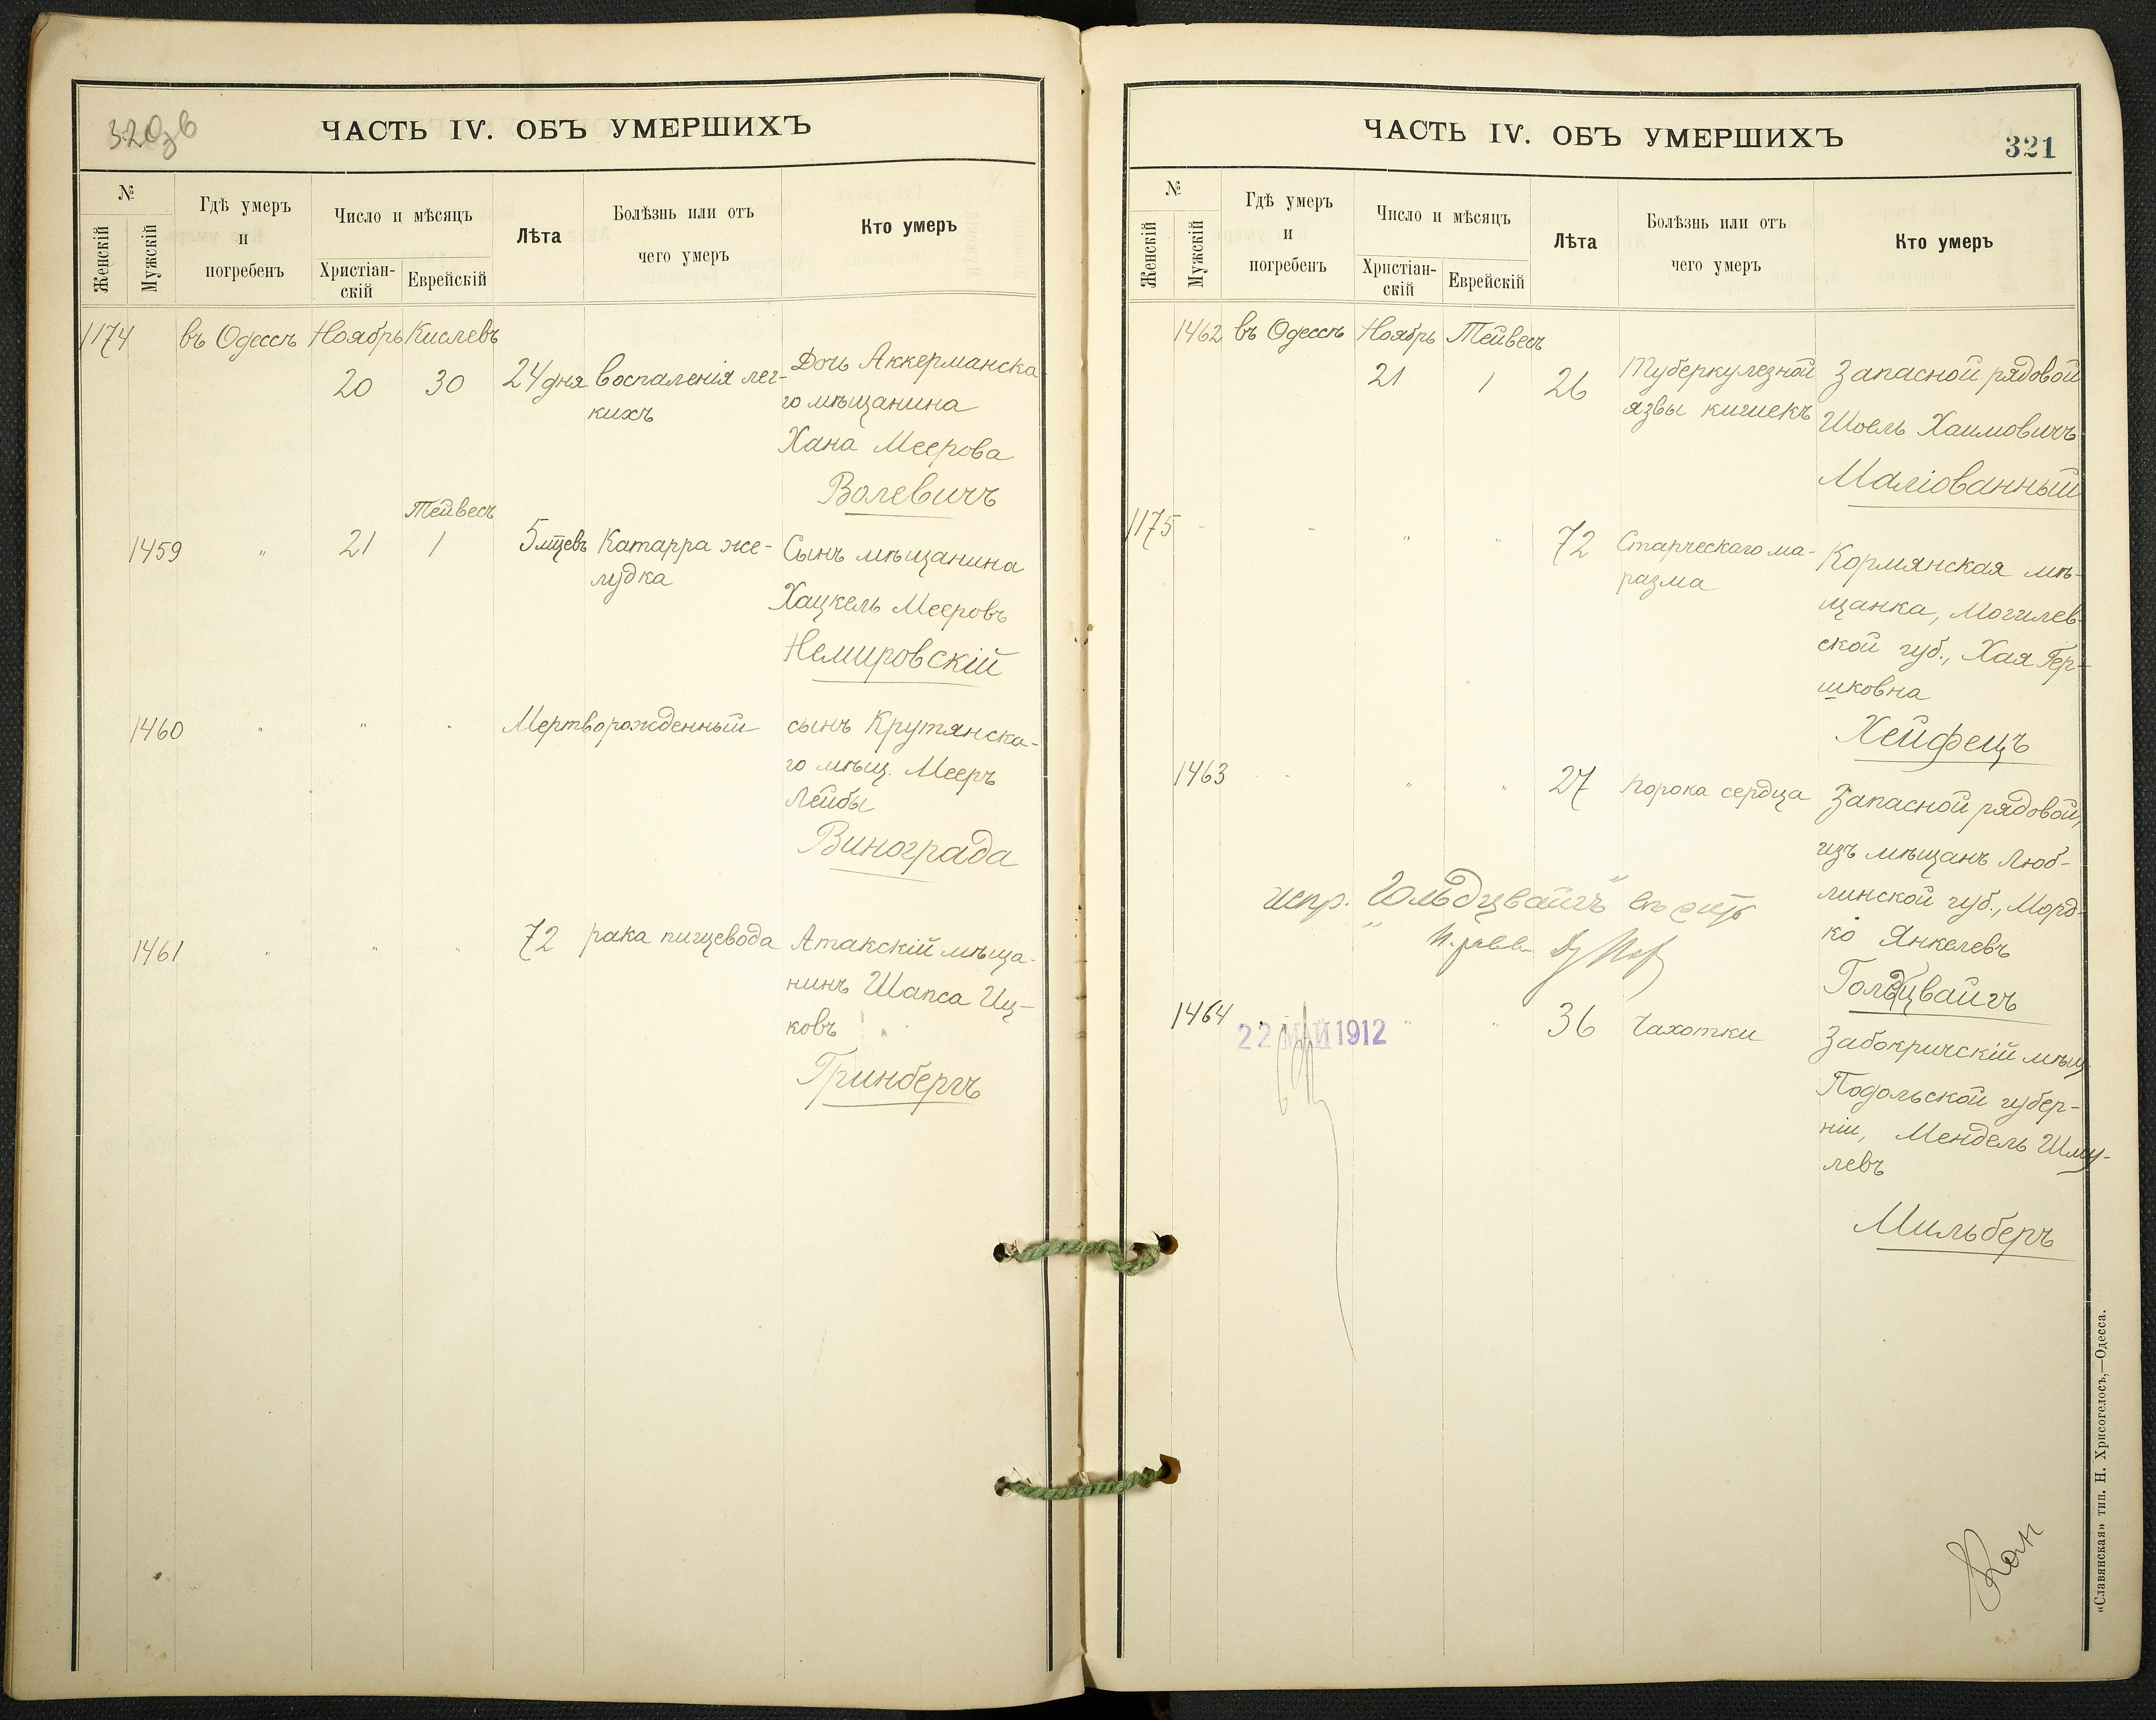 320об
ЧАСТЬ IV. ОБЪ УМЕРШИХЪ
№
Женскій
Мужскій
Гдѣ умеръ
и
погребенъ
Число и мѣсяцъ
Христіан-
скій
Еврейскій
Лѣта
Болѣзнь или отъ
чего умеръ
Кто умеръ
1174 въ Одессѣ Ноябрь Кислевъ
20 30 24 дня воспаленія лег-
кихъ
Дочь Аккерманска-
го мѣщанина
Хана Меерова
Волевичъ
Тейвесъ
1459 " 21 1 5 мѣцевъ Катарра же-
лудка
Сынъ мѣщанина
Хацкель Мееровъ
Немировскій
1460 " " " Мертворожденный
сынъ Крутянска-
го мѣщ. Мееръ
Лейбы
Винограда
1461 " " " 72 рака пищевода
Атакскій мѣща-
нинъ Шапса Иц-
ковъ
Гринбергъ
ЧАСТЬ IV. ОБЪ УМЕРШИХЪ
321
№
Женскій
Мужскій
Гдѣ умеръ
и
погребенъ
Число и мѣсяцъ
Христіан-
скій
Еврейскій
Лѣта
Болѣзнь или отъ
чего умеръ
Кто умеръ
1462 въ Одессѣ Ноябрь Тейвесъ
21 1 26 Туберкулезной
язвы кишекъ
Запасной рядовой
Шоель Хаимовичъ
Маліованный
1175 - - " " 72 Старческаго ма-
разма
Кормянская мѣ-
щанка, Могилев-
ской губ., Хая Гер-
шковна
Хейфецъ
1463 " " " 27 порока сердца
Запасной рядовой,
изъ мѣщанъ Люб-
линской губ., Морд-
ко Янкелевъ
Гольдцвайгъ
испр. "Гольдцвайгъ"
1464 " " 36 Чахотки
22 МАЙ 1912
Забокричскій мѣщ.
Подольской губер-
ніи, Мендель Шму-
левъ
Мильберъ
«Славянская» тип. Н. Хрисогелосъ,—Одесса.